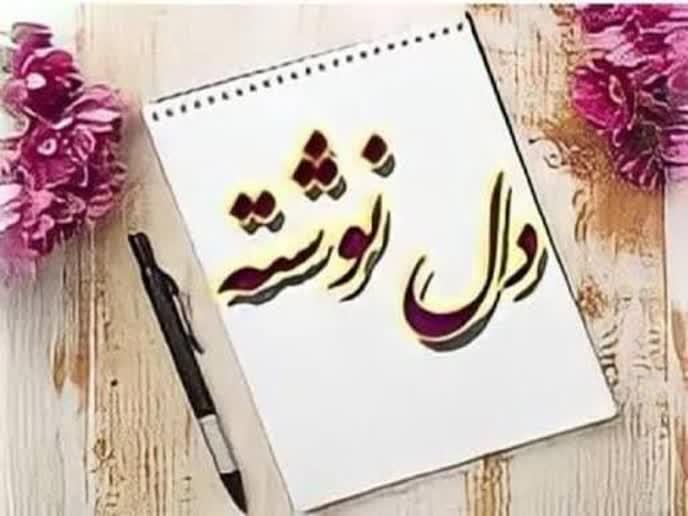 دل نوشته